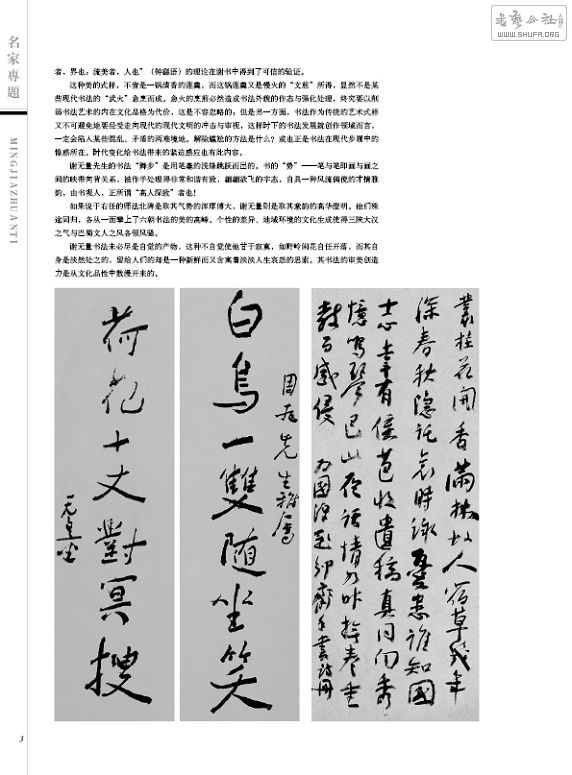 书艺公社
WWW.SHUFA.ORG
名家專題
MINGJIAZHUANTI
者，界也；流美者，人也”（钟繇语）的理论在谢书中得到了可信的验证。
这种美的式样，不啻是一锅清香的莲羹，而这锅莲羹又是慢火的“文煎”所得，显然不是某
些现代书法的“武火”急烹而成。急火的烹煎必然造成书法外貌的作态与强化处理，终究要以削
弱书法艺术的内在文化品格为代价，这是不容忽略的；但是另一方面，书法作为传统的艺术式样
又不可避免地要经受走向现代的现代文明的冲击与审视，这样时下的书法发展就创作领域而言，
一定会陷入某些混乱、矛盾的两难境地。解除尴尬的方法是什么？或也正是书法在现代步履中的
惶惑所在。时代变化给书法带来的紧迫感应也有此内容。
谢无量先生的书法“舞步”是用笔毫的浅锋跳跃而出的。书的“势”——笔与笔印画与画之
间的映带向背关系，被作手处理得非常和谐有致，翩翩欲飞的字态，自具一种风流倜傥的才情雅
韵，由书观人，正所谓“高人深致”者也！
如果说于右任的师法北碑是取其气势的浑厚博大，谢无量则是取其意韵的高华澄明。他们殊
途同归，各从一面攀上了六朝书法的美的高峰。个性的差异、地域环境的文化生成使得三陕大汉
之气与巴蜀文人之风各领风骚。
谢无量书法未必尽是自觉的产物，这种不自觉使他甘于寂寞，如野岭闲花自任开落，而其自
身是泱然处之的，留给人们的却是一种新鲜而又含寓着淡淡人生哀怨的思索。其书法的审美创造
力是从文化品性中散漫开来的。
叢桂花開香滿林 故人宿草幾年
深春秋隱託哀時詠 憂患誰知國
士心
白鳥一雙随坐笑
先生雅屬
荷花十丈對冥搜
无量
3